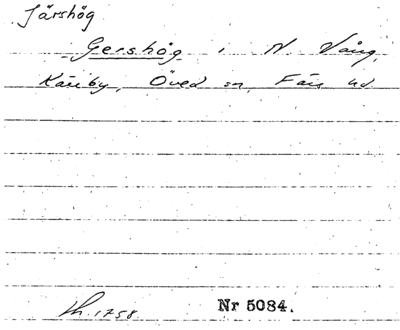 Järshög
Gershög i N. Vång,
Käreby, Öved sn, Färs hd
Lh. 1758. Nr 5084.